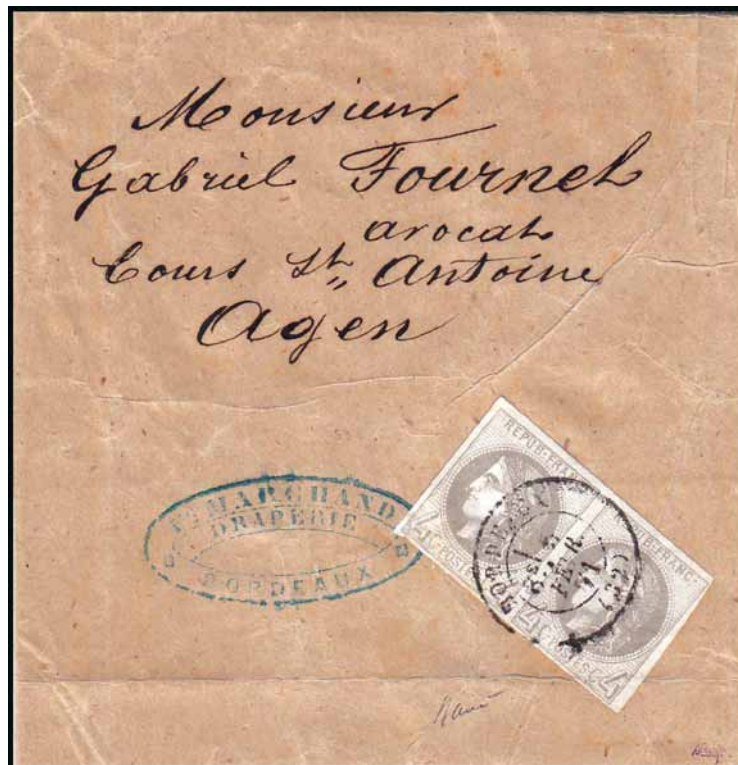 Monsieur
Gabriel Fournel
avocat
Cours St. Antoine
Agen
MARCHAND
DRAPERIE
BORDEAUX
REPUB. FRANC.
4 POSTES 4
BORDEAUX
FEVR
71
(32)